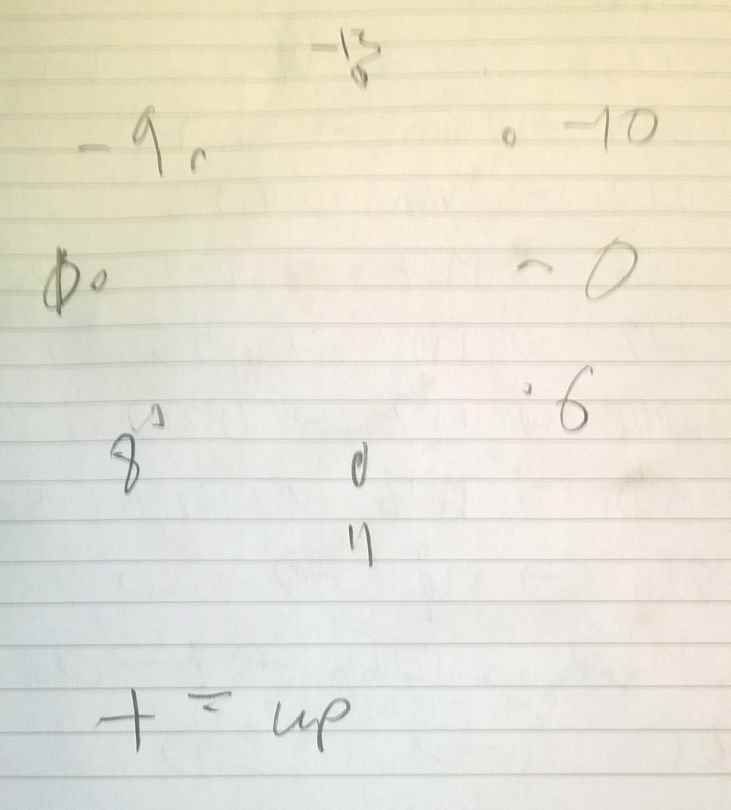 -13
-9 -10
0 0
6
8
11
+ = up